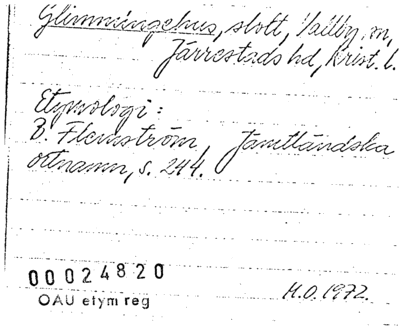 Glimmingehus, slott, Vallby sn,
Järrestads hd, Krist. l.
Etymologi:
B. Flemström, Jämtländska
ortnamn, s. 244.
00024820
OAU etym reg
H.O. 1972.